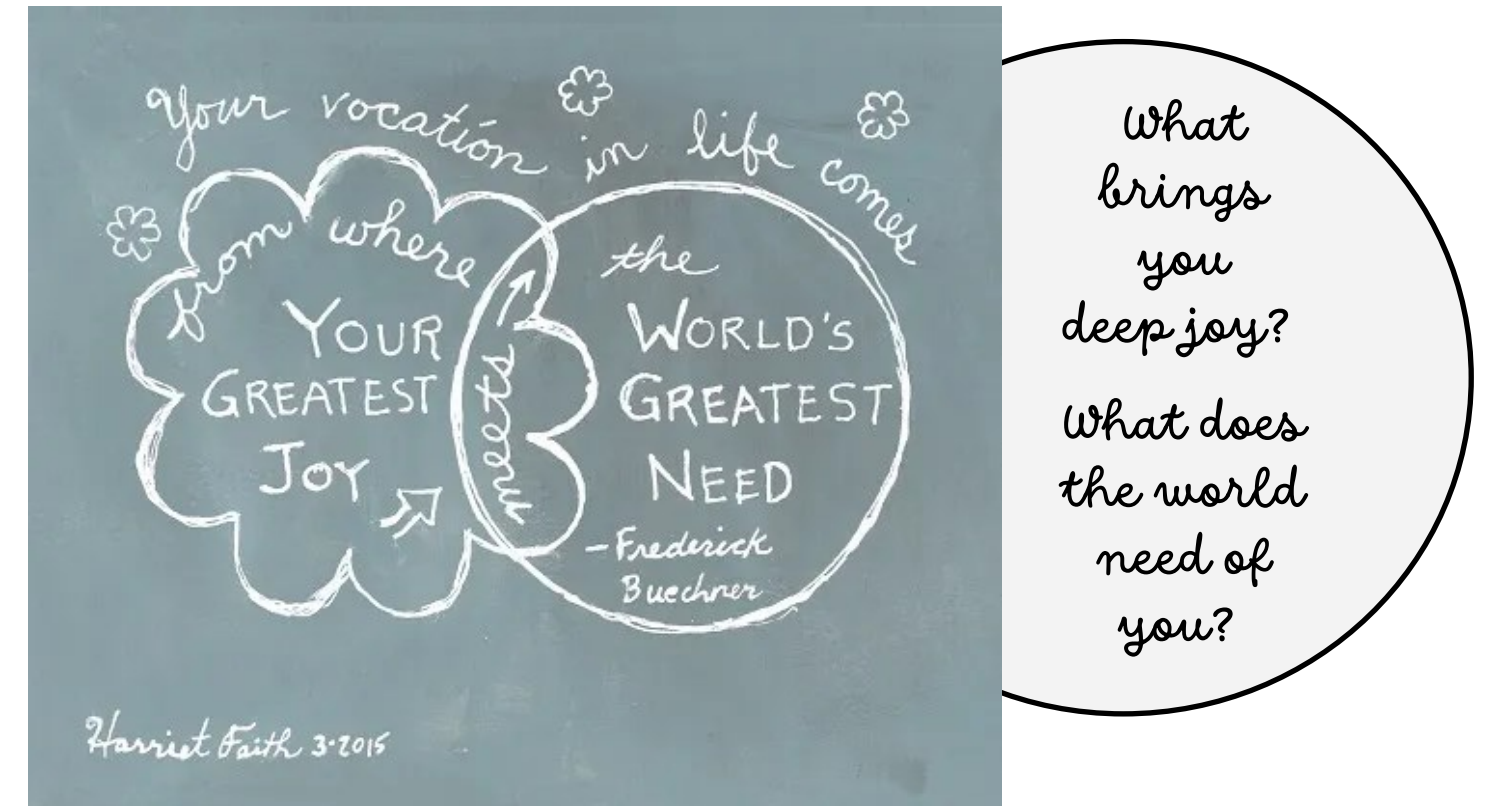 Your vocation in life comes
from where
YOUR
GREATEST
JOY
meets
the
WORLD'S
GREATEST
NEED
- Frederick
Buechner
Harriet Faith 3·2015
What
brings
you
deep joy?
What does
the world
need of
you?